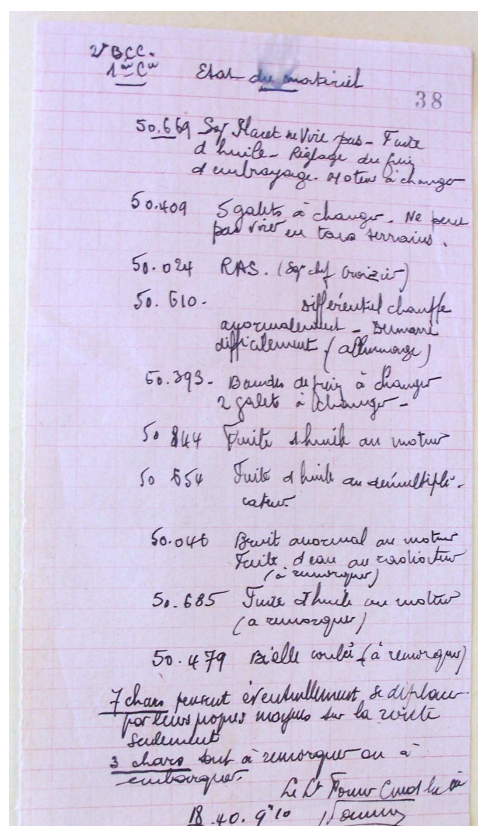 2e BCC.
1ere Cie
Etat du matériel
38
50.669 Sgt Placet ne Vire pas - Fuite
d'huile - Réglage du frein
d'embrayage. Moteur à changer
50.409 5 galets à changer. Ne peut
pas virer en tous terrains.
50.024 RAS. (Sgt chef Croizier)
50.610. Différentiel chauffe
anormalement - Démarre
difficilement (allumage)
50.393 - Bandes de frein à changer
2 galets à changer -
50 844 Fuite d'huile au moteur
50 654 Fuite d'huile au démultipli-
cateur.
50.046 Bruit anormal au moteur
Fuite d'eau au radiateur
(à remorquer)
50.685 Fuite d'huile au moteur
(à remorquer)
50.479 Bielle coulée (à remorquer)
7 chars peuvent éventuellement se déplacer
par leurs propres moyens sur la route
seulement
3 chars sont à remorquer ou à
embarquer.
Le Lt Cmdt la Cie
18.40. 9h10